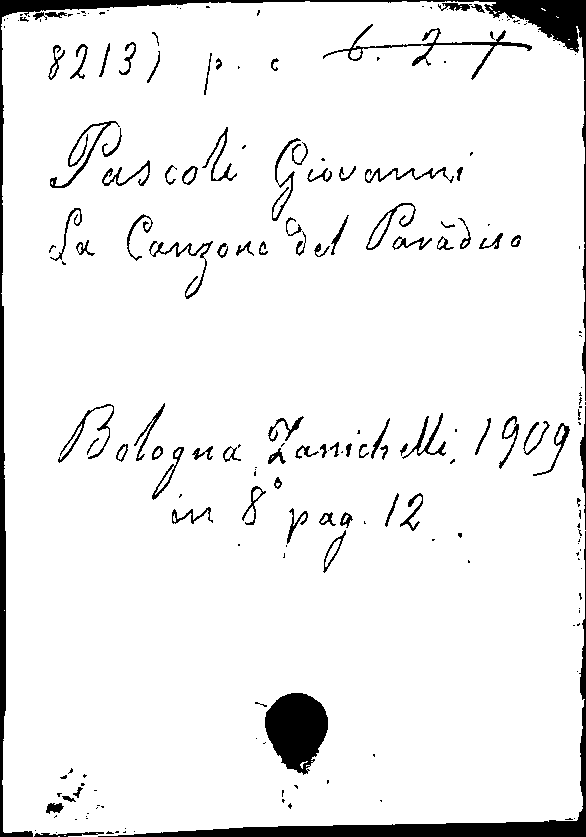 8213) p. c 6. 2. 7
Pascoli Giovanni
La Canzone del Paradiso
Bologna, Zanichelli, 1909
in 8° pag. 12.